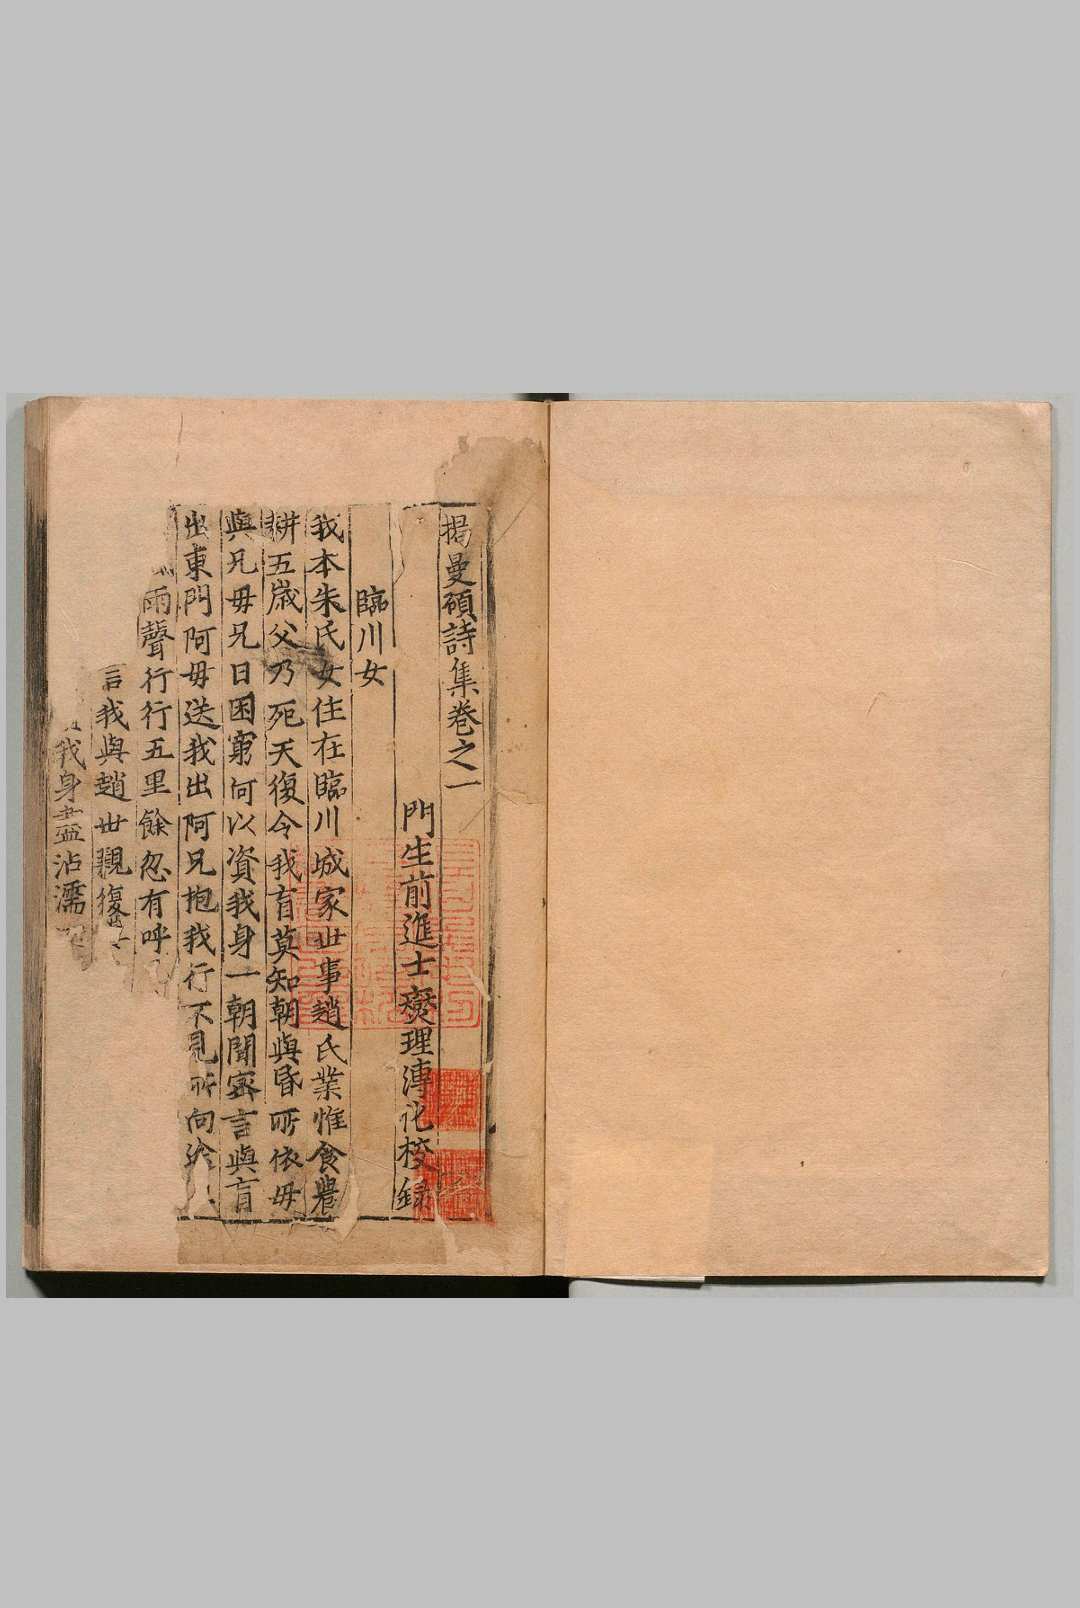 揭曼碩詩集卷之一
門生前進士燮理溥化校錄
臨川女
我本朱氏女住在臨川城家世事趙氏業惟食農
耕五歲父乃死天復令我盲莫知朝與昏所依母
與兄母兄日困窮何以資我身一朝聞密言與盲
出東門阿母送我出阿兄抱我行不見所向
雨聲行行五里餘忽有呼
言我與趙世親復
我身盡沾濡